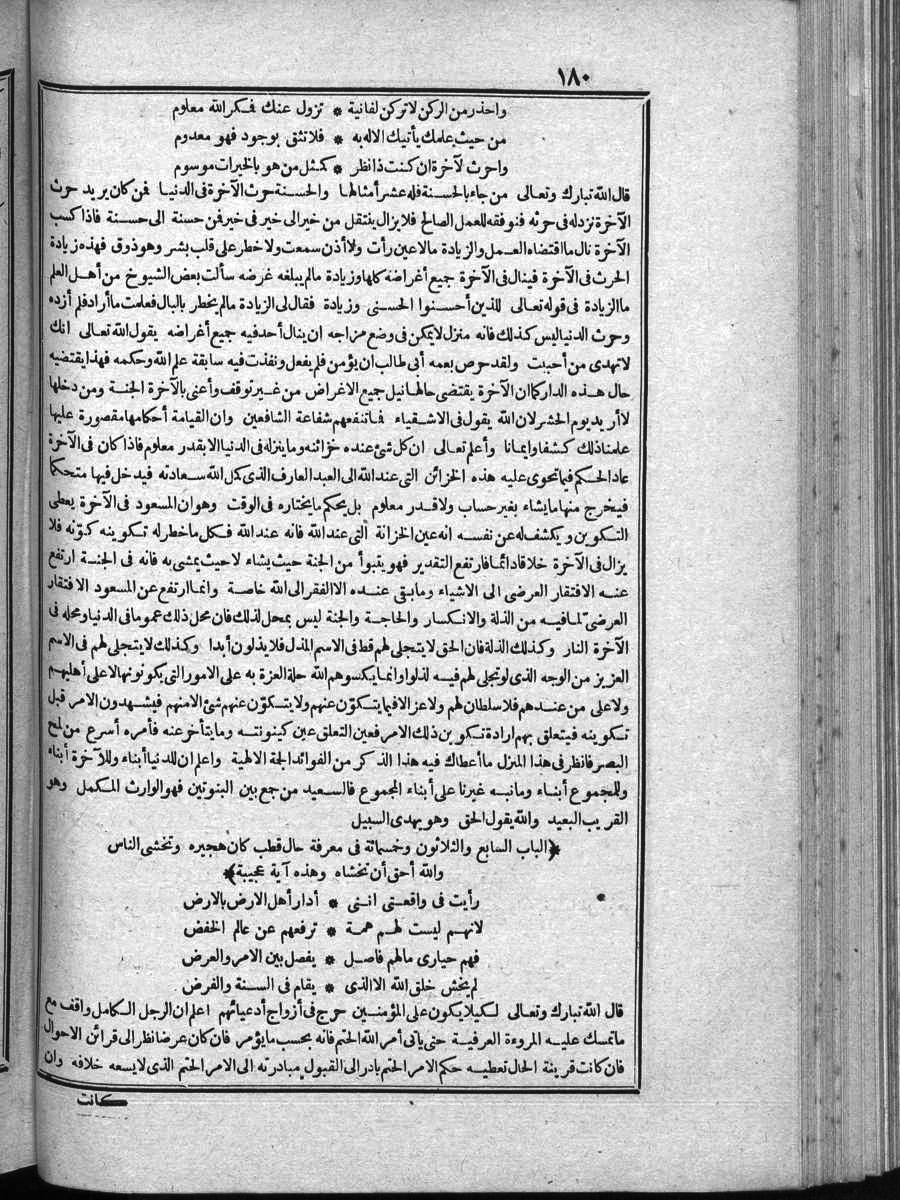 ١٨٠
واحذر من الركن لا تركن لفانية * تزول عنك فمكر الله معلوم
من حيث علمك يأتيك الاله به * فلا تثق بوجود فهو معدوم
واحرث لآخرة ان كنت ذا نظر * كمثل من هو بالخيرات موسوم
قال الله تبارك وتعالى من جاء بالحسنة فله عشر أمثالها والحسنة حرث الآخرة فى الدنيا فمن كان يريد حرث
الآخرة نزد له فى حرثه فنوفقه للعمل الصالح فلا يزال ينتقل من خير الى خير فى خير فمن حسنة الى حسنة فاذا كسب
الآخرة نال ما اقتضاه العمل والزيادة ما لا عين رأت ولا أذن سمعت ولا خطر على قلب بشر وهو ذوق فهذه زيادة
الحرث فى الآخرة فينال فى الآخرة جميع أغراضه كلها وزيادة ما لم يبلغه غرضه سألت بعض الشيوخ من أهل العلم
ما الزيادة فى قوله تعالى للذين أحسنوا الحسنى وزيادة فقال لى الزيادة ما لم يخطر بالبال فعلمت ما أراد فلم أزده
وحرث الدنيا ليس كذلك فانه منزل لا يمكن فى وضع مزاجه ان ينال أحد فيه جميع أغراضه يقول الله تعالى انك
لا تهدى من أحببت ولقد حرص بعمه أبى طالب ان يؤمن فلم يفعل ونفذت فيه سابقة علم الله وحكمه فهذا يقتضيه
حال هذه الدار كما ان الآخرة يقتضى حالها نيل جميع الاغراض من غير توقف وأعنى بالآخرة الجنة ومن دخلها
لا أريد يوم الحشر لان الله يقول فى الاشقياء فما تنفعهم شفاعة الشافعين وان القيامة أحكامها مقصورة عليها
علمنا ذلك كشفا وايمانا واعلم تعالى ان كل شئ عنده خزائنه وما ينزله فى الدنيا الا بقدر معلوم فاذا كان فى الآخرة
عاد الحكم فيما تحوى عليه هذه الخزائن التى عند الله الى العبد العارف الذى كمل الله سعادته فيدخل فيها متحكما
فيخرج منها ما يشاء بغير حساب ولا قدر معلوم بل يحكم ما يختاره فى الوقت وهو ان المسعود فى الآخرة يعطى
التكوين ويكشف له عن نفسه انه عين الخزانة التى عند الله فانه عند الله فكل ما خطر له تكوينه كوّنه فلا
يزال فى الآخرة خلاقا دائما فارتفع التقدير فهو يتبوأ من الجنة حيث يشاء لا حيث يمشى به فانه فى الجنة ارتفع
عنه الافتقار العرضى الى الاشياء وما بقى عنده الا الفقر الى الله خاصة وانما ارتفع عن المسعود الافتقار
العرضى لما فيه من الذلة والانكسار والحاجة والجنة ليس بمحل لذلك فان محل ذلك عموما فى الدنيا ومحله فى
الآخرة النار وكذلك الذلة فان الحق لا يتجلى لهم قط فى الاسم المذل فلا يذلون أبدا وكذلك لا يتجلى لهم فى الاسم
العزيز من الوجه الذى لو تجلى لهم فيه لذلوا وانما يكسوهم الله حلة العزة به على الامور التى يكونونها لا على أهليهم
ولا على من عندهم فلا سلطان لهم ولا عز الا فيما يتكوّن عنهم ولا يتكوّن عنهم شئ الا منهم فيشهدون الامر قبل
تكوينه فيتعلق بهم ارادة تكوين ذلك الامر فعين التعلق عين كينونته وما يتأخر عنه فأمره أسرع من لمح
البصر فانظر فى هذا المنزل ما أعطاك فيه هذا الذكر من الفوائد الجمة الالهية واعلم ان للدنيا أبناء وللآخرة أبناء
وللمجموع أبناء وما نبه غيرنا على أبناء المجموع فالسعيد من جمع بين البنوتين فهو الوارث المكمل وهو
القريب البعيد والله يقول الحق وهو يهدى السبيل
﴿الباب السابع والثلاثون وخمسمائة فى معرفة حال قطب كان هجيره وتخشى الناس
والله أحق أن تخشاه وهذه آية عجيبة﴾
رأيت فى واقعتى اننى * أدار أهل الارض بالارض
لانهم ليست لهم همة * ترفعهم عن عالم الخفض
فهم حيارى ما لهم فاصل * يفصل بين الامر والعرض
لم يخش خلق الله الا الذى * يقام فى السنة والفرض
قال الله تبارك وتعالى لكيلا يكون على المؤمنين حرج فى أزواج أدعيائهم اعلم ان الرجل الكامل واقف مع
ما تمسك عليه المروءة العرفية حتى يأتى أمر الله الحتم فانه بحسب ما يؤمر فان كان عرضا نظر الى قرائن الاحوال
فان كانت قرينة الحال تعطيه حكم الامر الحتم بادر الى القبول مبادرته الى الامر الحتم الذى لا يسعه خلافه وان
كانت